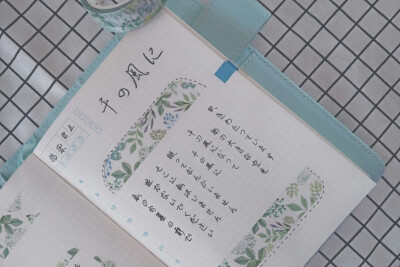 千の風に
私のお墓の前で
泣かないでください
そこに私はいません
眠ってなんかいません
千の風に
千の風になって
あの大きな空を
吹きわたっています